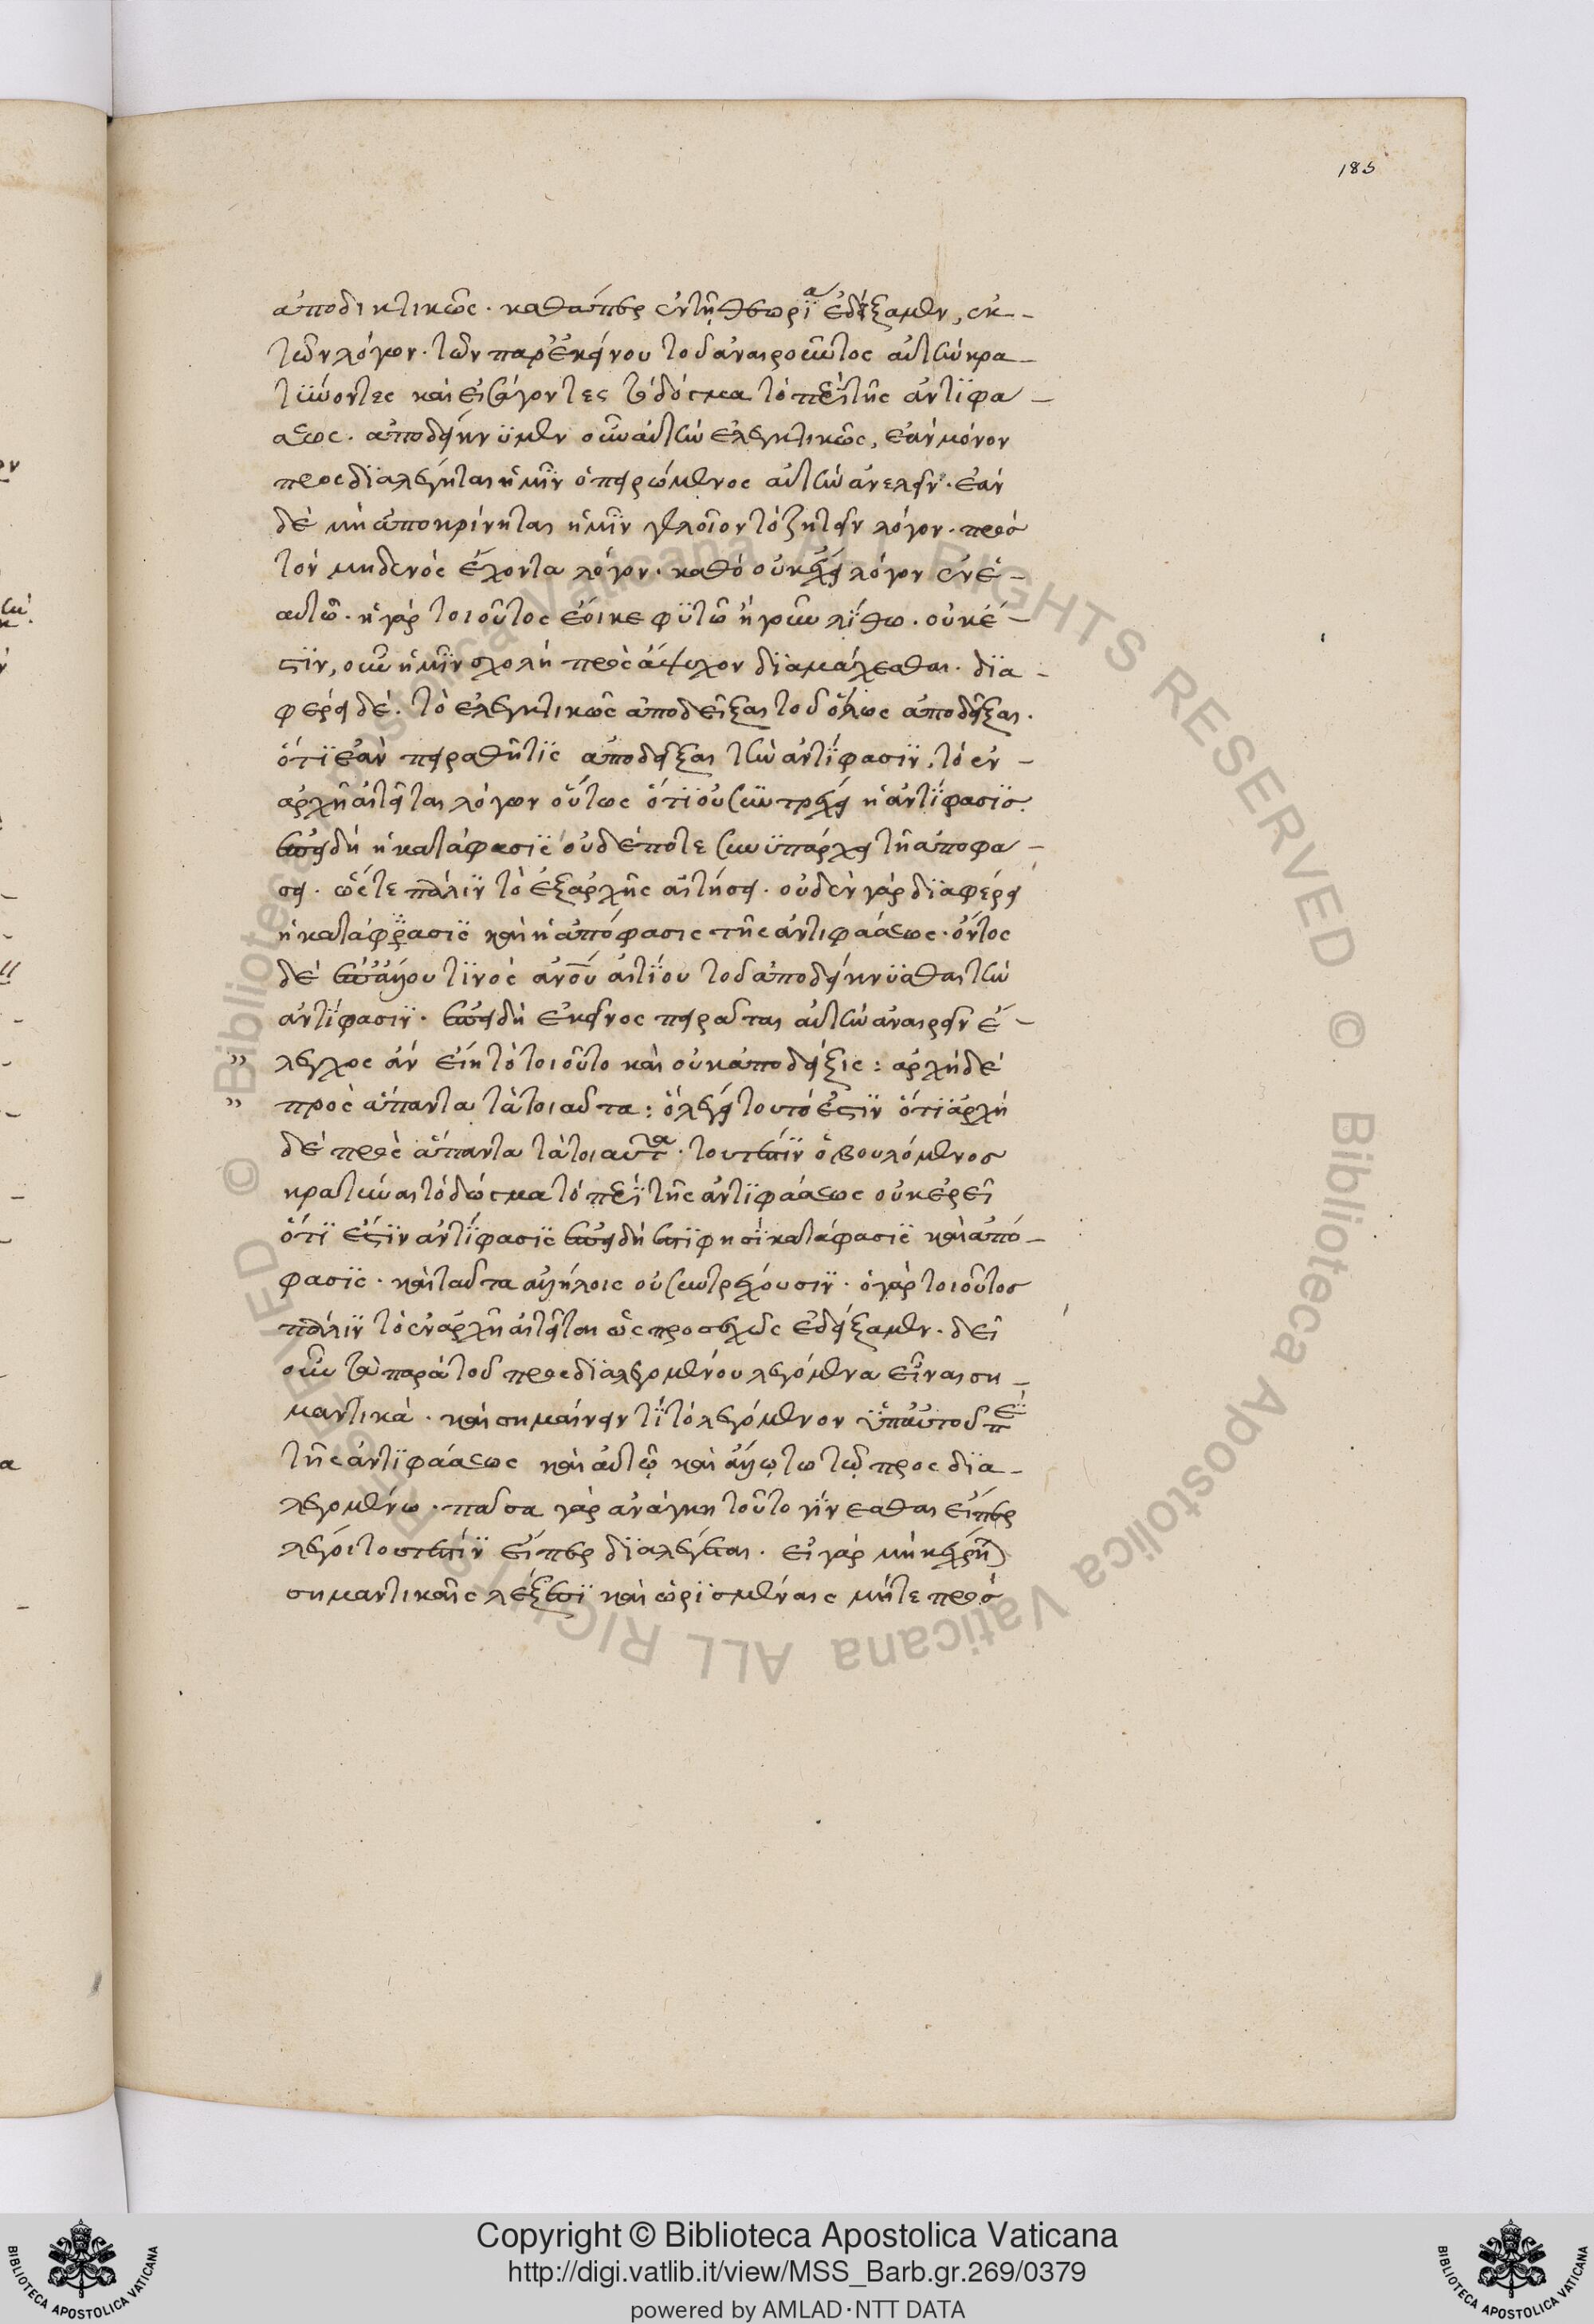 185
ἀποδικτικῶς. καθάπερ ἐν τῆ θεωρία ἐδείξαμεν, ἐκ
τῶν λόγων. τῶν παρ' ἐκείνου τοῦ ἀναιροῦντος αὐτὴν κρα
τύνοντες καὶ εἰσάγοντες τὸ δόγμα τὸ περὶ τῆς ἀντιφά
σεως. ἀποδείκνυμεν οὖν αὐτὴν ἐλεγκτικῶς, ἐὰν μόνον
προσδιαλέγηται ἡμῖν ὁ πειρώμενος αὐτὴν ἀνελεῖν. ἐὰν
δὲ μὴ ἀποκρίνηται ἡμῖν γελοῖον τὸ ζητεῖν λόγον. πρὸς
τὸν μηδενὸς ἔχοντα λόγον. καθὸ οὐκ ἔχει λόγον ἐν ἑ
αυτῶ. ἡ γὰρ τοιοῦτος ἔοικε φυτῶ ἢ γοῦν λίθω. οὐκ ἔ
στιν, οὖν ἡμῖν σχολὴ πρὸς ἄψυχον διαμάχεσθαι. δια
φέρει δὲ. τὸ ἐλεγκτικῶς ἀποδεῖξαι τοῦ ὅλως ἀποδεῖξαι.
ὅτι ἐὰν πειραθῆ τὶς ἀποδεῖξαι τὴν ἀντίφασιν, τὸ ἐν
ἀρχῆ αἰτεῖται λόγων οὕτως ὅτι οὐ συντρέχει ἡ ἀντίφασις
ἐπειδὴ ἡ κατάφασις οὐδέποτε συνυπάρχει τῆ ἀποφά
σει. ὥστε πάλιν τὸ ἐξ ἀρχῆς αἰτήσει. οὐδὲν γὰρ διαφέρει
ἡ κατάφρασις καὶ ἡ ἀπόφασις τῆς ἀντιφάσεως. ὄντος
δὲ ἐπ' ἄλλου τινὸς ἀνοῦ αἰτίου τοῦ ἀποδείκνυσθαι τὴν
ἀντίφασιν. ἐπειδὴ ἐκεῖνος πειρᾶται αὐτὴν ἀναιρεῖν ἔ
" λεγχος ἂν εἴη τὸ τοιοῦτο καὶ οὐκ ἀποδείξις: ἀρχὴ δὲ
" πρὸς ἅπαντα τὰ τοιαῦτα: ὃ λέγει τουτό ἐστιν ὅτι ἀρχὴ
δὲ πρὸς ἅπαντα τὰ τοιαῦτα. τουτέστιν ὁ βουλόμενος
κρατύναι τὸ δώγμα τὸ περὶ τῆς ἀντιφάσεως οὐκ ἐρεῖ
ὅτι ἐστὶν ἀντίφασις ἐπειδὴ ἐστὶ φησὶ κατάφασις καὶ ἀπό
φασις. καὶ ταῦτα ἀλλήλοις οὐ συντρέχουσιν. ὁ γὰρ τοιοῦτος
πάλιν τὸ ἐν ἀρχῆ αἰτεῖται ὡς προσεχῶς ἐδείξαμεν. δεῖ
οὖν τὰ παρὰ τοῦ προσδιαλεγομένου λεγόμενα εἶναι ση
μαντικά. καὶ σημαίνειν τί τὸ λεγόμενον ὑπ' αὐτοῦ περὶ
τῆς ἀντιφάσεως καὶ αὐτῷ καὶ ἄλλῳ τω τῷ προσδια
λεγομένω. πᾶσα γὰρ ἀνάγκη τοῦτο γίνεσθαι εἴπερ
λέγοι τουτέστιν εἴπερ διαλέγεται. εἰ γὰρ μὴ κέχρηται
σημαντικαῖς λέξεσι καὶ ὡρισμέναις μήτε πρὸς
Copyright © Biblioteca Apostolica Vaticana
http://digi.vatlib.it/view/MSS_Barb.gr.269/0379
powered by AMLAD·NTT DATA